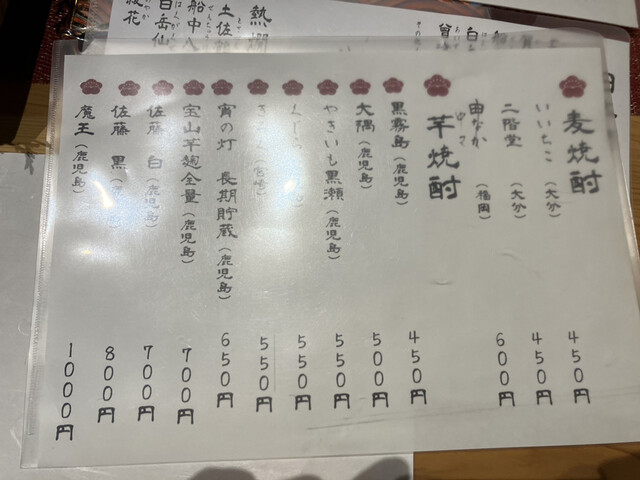 麦焼酎
いいちこ（大分） 450円
二階堂（大分） 450円
なか（福岡） 600円
芋焼酎
黒霧島（鹿児島） 450円
大隅（鹿児島） 500円
やきいも黒瀬（鹿児島） 550円
550円
（宮崎） 550円
宵の灯 長期貯蔵（鹿児島） 650円
宝山芋麹全量（鹿児島） 700円
佐藤 白（鹿児島） 700円
佐藤 黒 800円
魔王（鹿児島） 1000円
熱燗
土佐
船中八
白岳仙
花